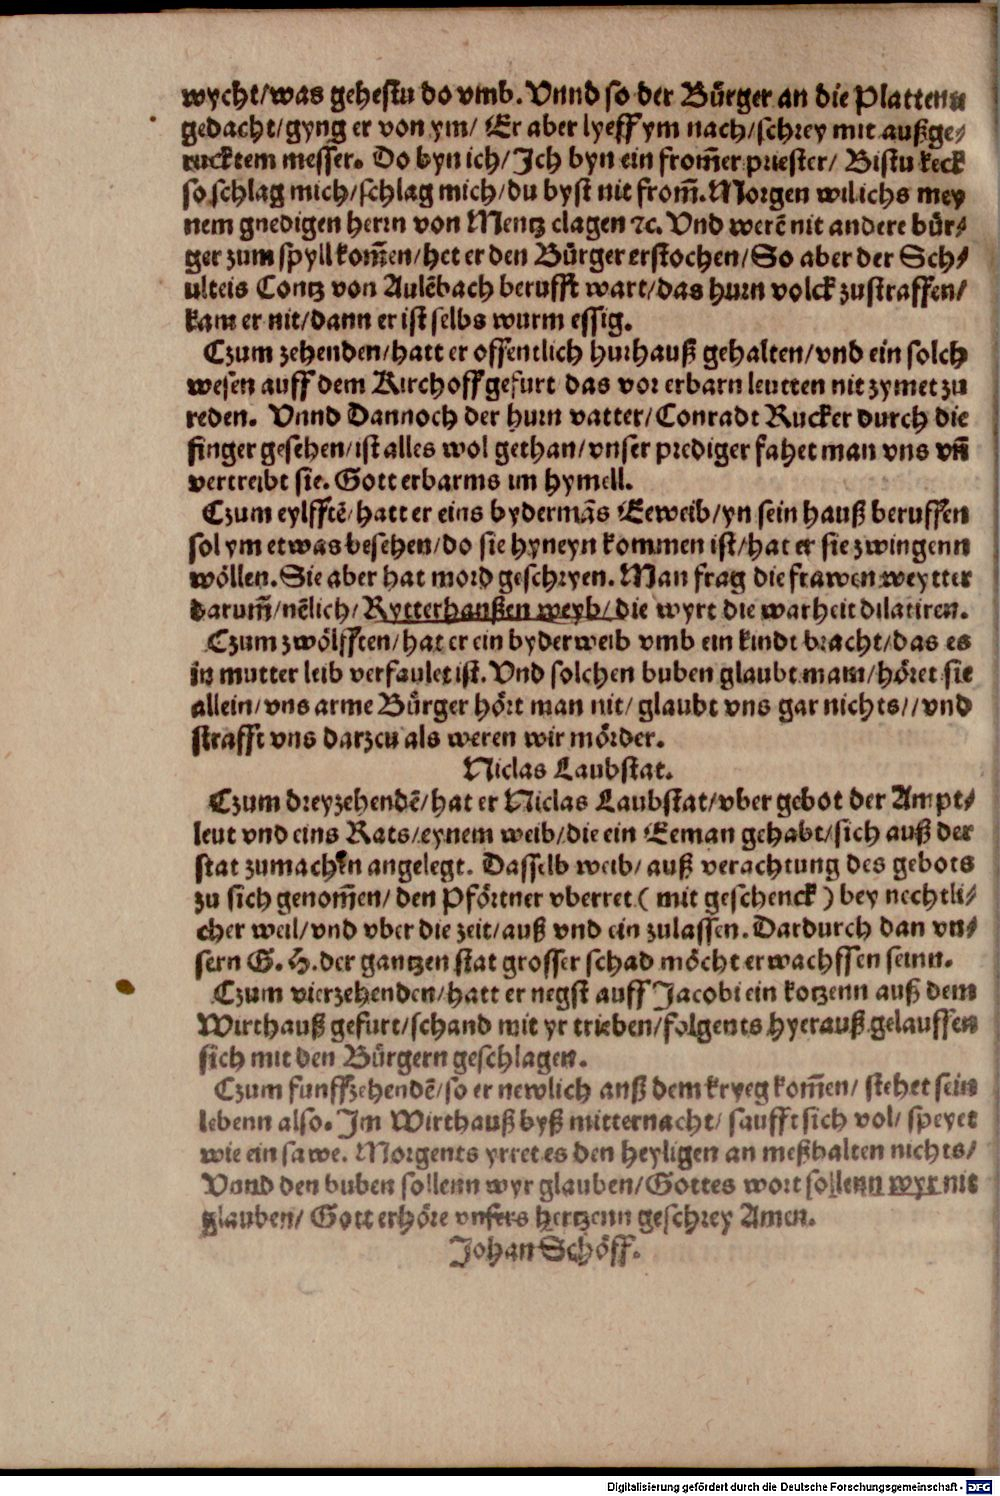 wycht/was gehestu do vmb. Vnnd so der Bürger an die Plattenn
gedacht/gyng er von ym/ Er aber lyeff ym nach/schrey mit außge/
rucktem messer. Do byn ich/Ich byn ein from̃er priester/ Bistu keck
so schlag mich/schlag mich/du byst nit from̃. Morgen wilichs mey
nem gnedigen herrn von Mentz clagen ꝛc. Vnd werẽ nit andere bür/
ger zum spyll kom̃en/het er den Bürger erstochen/So aber der Sch/
ulteis Contz von Aulẽbach berufft wart/das hurn volck zustraffen/
kam er nit/dann er ist selbs wurm essig.
Czum zehenden/hatt er offentlich hurhauß gehalten/vnd ein solch
wesen auff dem Kirchoff gefurt das vor erbarn leutten nit zymet zu
reden. Vnnd Dannoch der hurn vatter/Conradt Rucker durch die
finger gesehen/ist alles wol gethan/vnser prediger fahet man vns vñ
vertreibt sie. Gott erbarms im hymell.
Czum eylfftẽ/hatt er eins bydermãs Eeweib/yn sein hauß beruffen
sol ym etwas besehen/do sie hyneyn kommen ist/hat er sie zwingenn
wöllen. Sie aber hat mord geschryen. Man frag die frawen weytter
darum̃/nẽlich/Rytterhanßen weyb/die wyrt die warheit dilatiren.
Czum zwölfften/hat er ein byderweib vmb ein kindt bracht/das es
in mutter leib verfaulet ist. Vnd solchen buben glaubt mam/höret sie
allein/vns arme Bürger hört man nit/ glaubt vns gar nichts//vnd
strafft vns darzcu als weren wir mörder.
Niclas Laubstat.
Czum dreyzehendẽ/hat er Niclas Laubstat/vber gebot der Ampt/
leut vnd eins Rats/eynem weib/die ein Eeman gehabt/sich auß der
stat zumachen angelegt. Dasselb weib/auß verachtung des gebots
zu sich genom̃en/den Pförtner vberret ( mit geschenck ) bey nechtli/
cher weil/vnd vber die zeit/auß vnd ein zulassen. Dardurch dan vn/
sern G. H. der gantzen stat grosser schad möcht erwachssen seinn.
Czum vierzehenden/hatt er negst auff Jacobi ein kotzenn auß dem
Wirthauß gefurt/schand mit yr trieben/folgents hyerauß gelauffen
sich mit den Bürgern geschlagen.
Czum funffzehendẽ/so er newlich auß dem kryeg kom̃en/ stehet sein
lebenn also. Im Wirthauß byß mitternacht/ saufft sich vol/ speyet
wie ein sawe. Morgents yrret es den heyligen an meßhalten nichts/
Vnnd den buben sollenn wyr glauben/Gottes wort sollenn wyr nit
glauben/ Gott erhöre vnsers hertzenn geschrey Amen.
Johan Schöff.
Digitalisierung gefördert durch die Deutsche Forschungsgemeinschaft - DFG